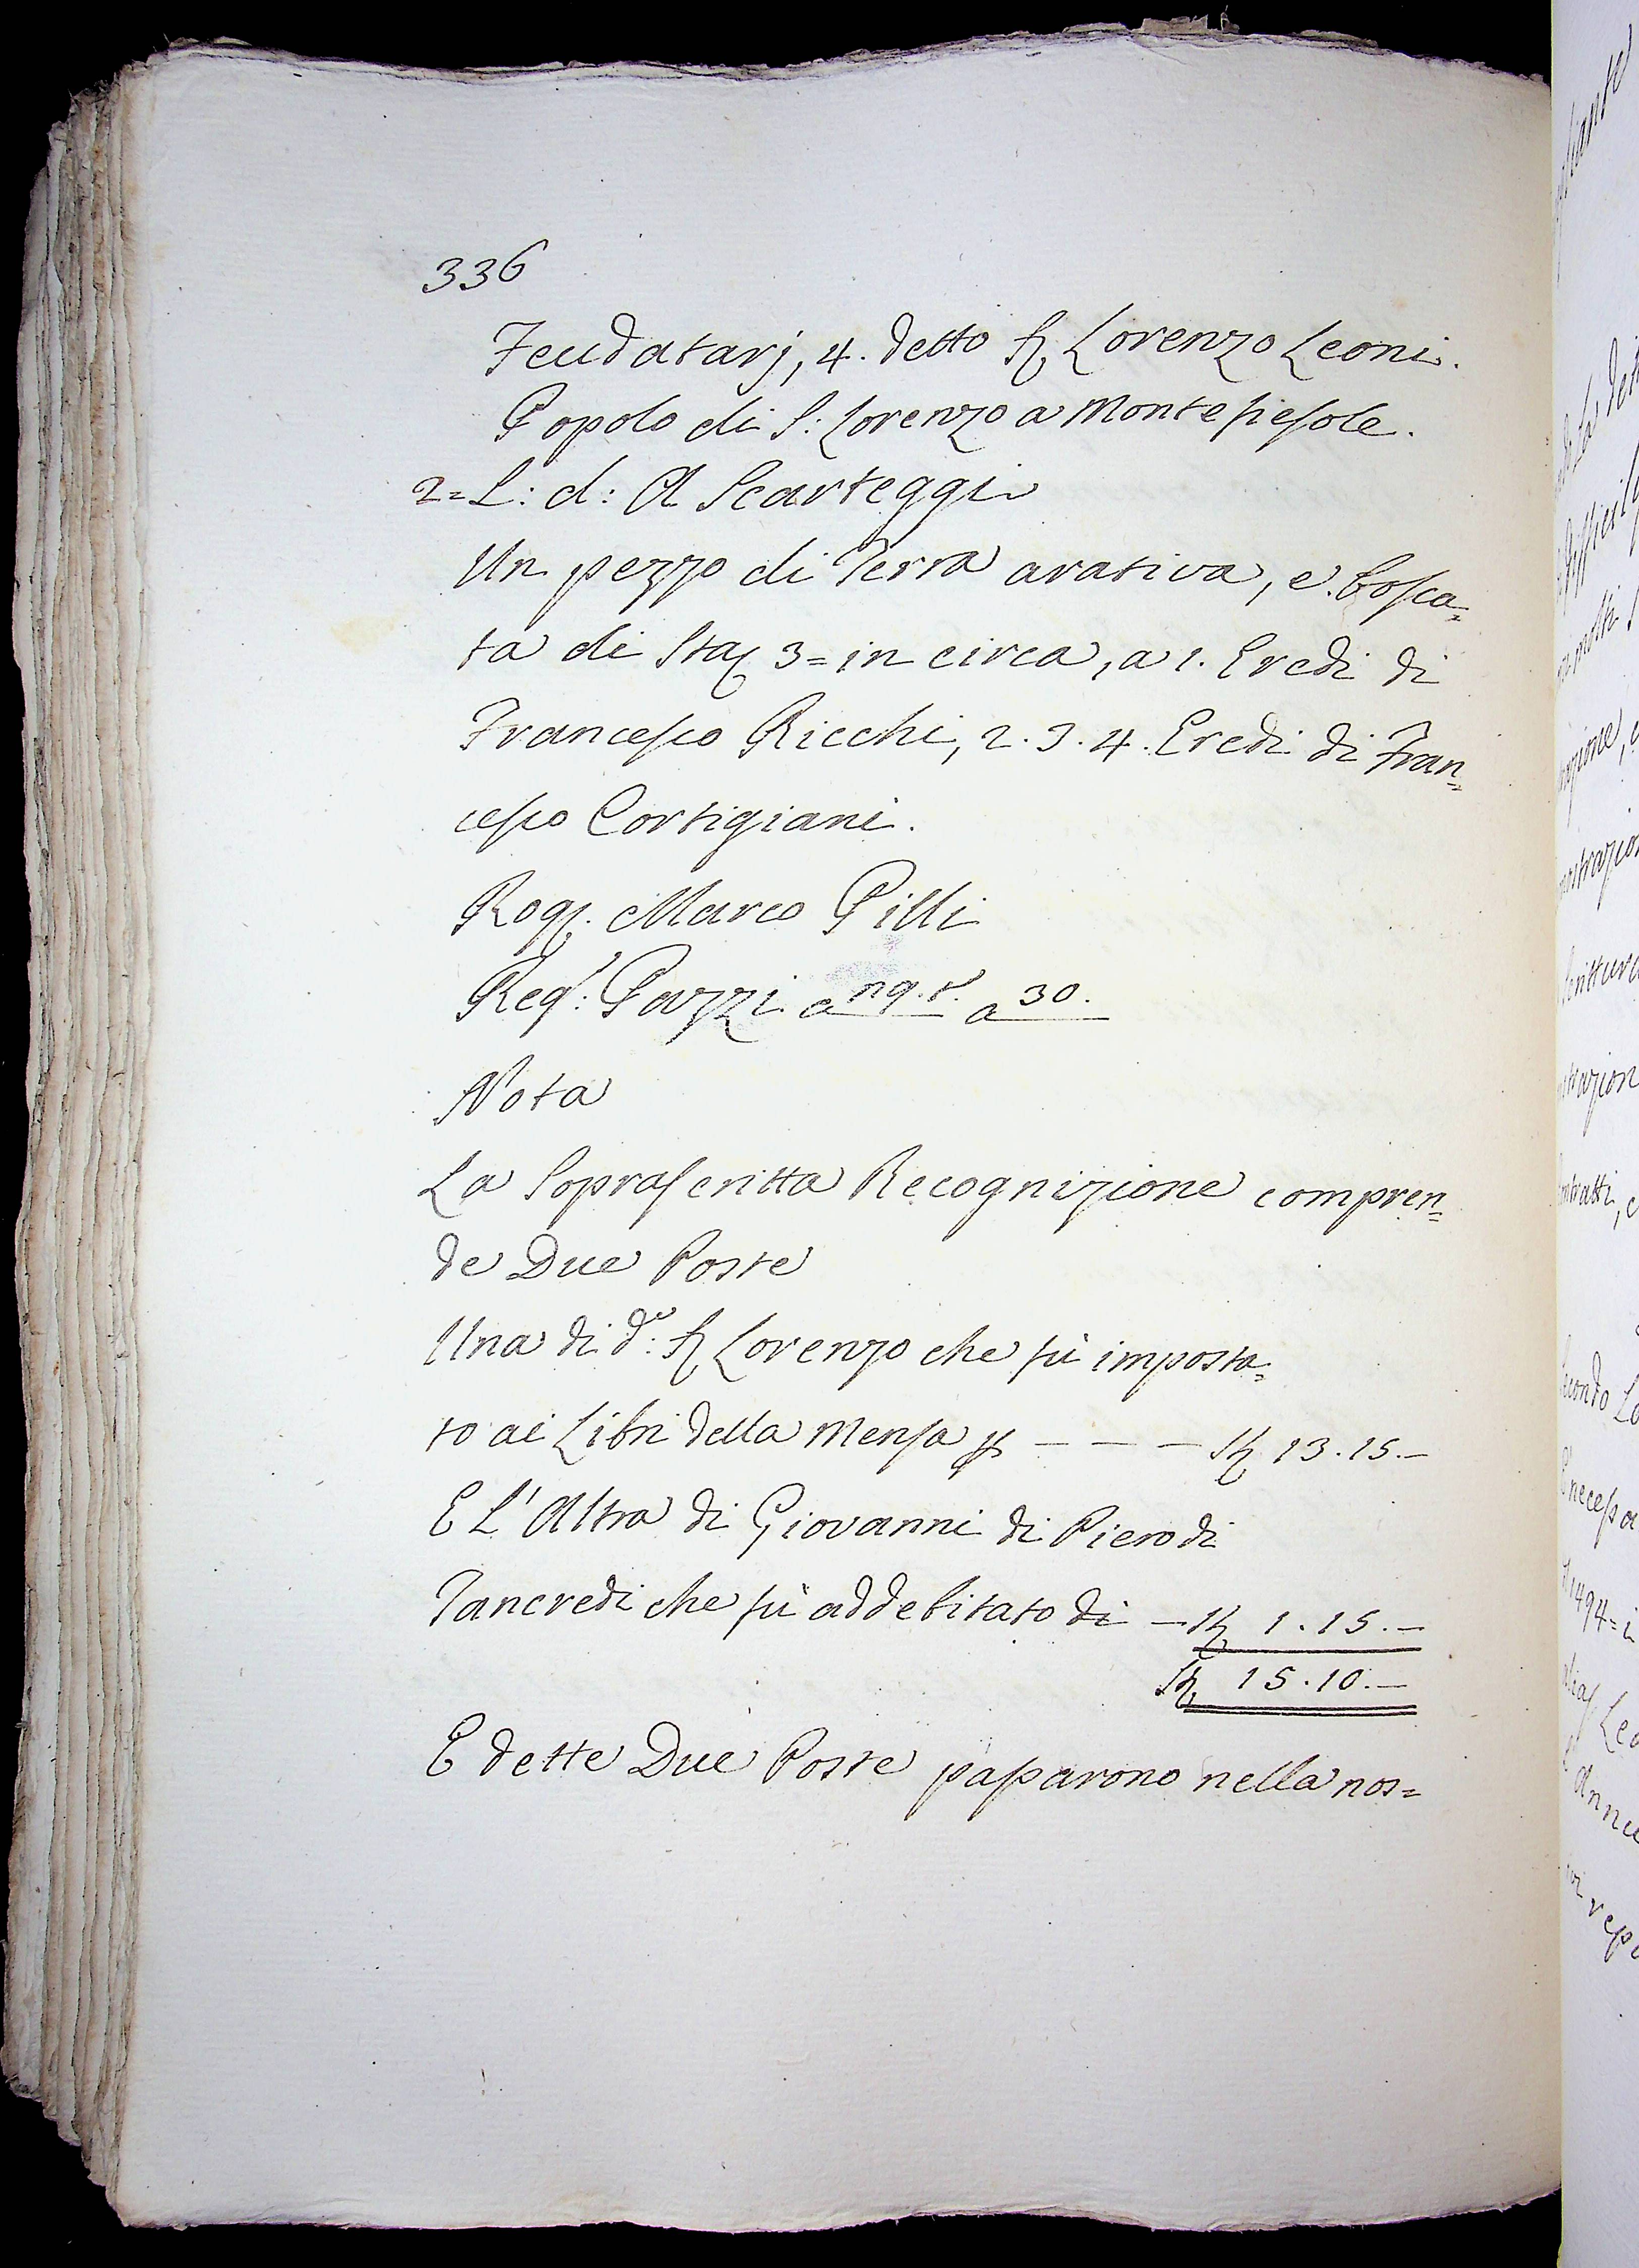 336
Feudatarj, 4. detto S. Lorenzo Leoni.
Popolo di S: Lorenzo a Montefiesole.
2= L: d: A Scarteggi
Un pezzo di Terra arativa, e bosca=
ta di Sta 3= in circa, a 1. Eredi di
Francesco Ricchi, 2. 3. 4. Eredi di Fran=
cesco Cortigiani.
Rog. Marco Pilli
Reg: Pazzi a a 30.
Nota
La Soprascritta Recognizione compren=
de Due Poste
Una di d.o: S. Lorenzo che fù imposta=
to ai Libri della Mensa p - - - St 13.15.-
E L'Altra di Giovanni di Piero di
Tancredi che fù addebitato di - St 1.15.-
St 15.10.-
E dette Due Poste passarono nella nos=